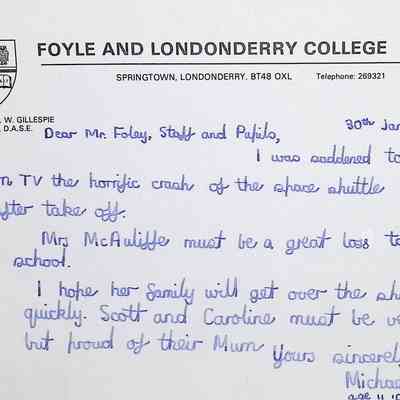 FOYLE AND LONDONDERRY COLLEGE
SPRINGTOWN, LONDONDERRY. BT48 OXL Telephone: 269321
W. GILLESPIE
D.A.S.E.
30th Jan
Dear Mr. Foley, Staff and Pupils,
I was saddened to
TV the horrific crash of the space shuttle
after take off.
Mrs McAuliffe must be a great loss to
school.
I hope her family will get over the sh
quickly. Scott and Caroline must be ve
but proud of their Mum
Yours sincerely
Michae
age 11